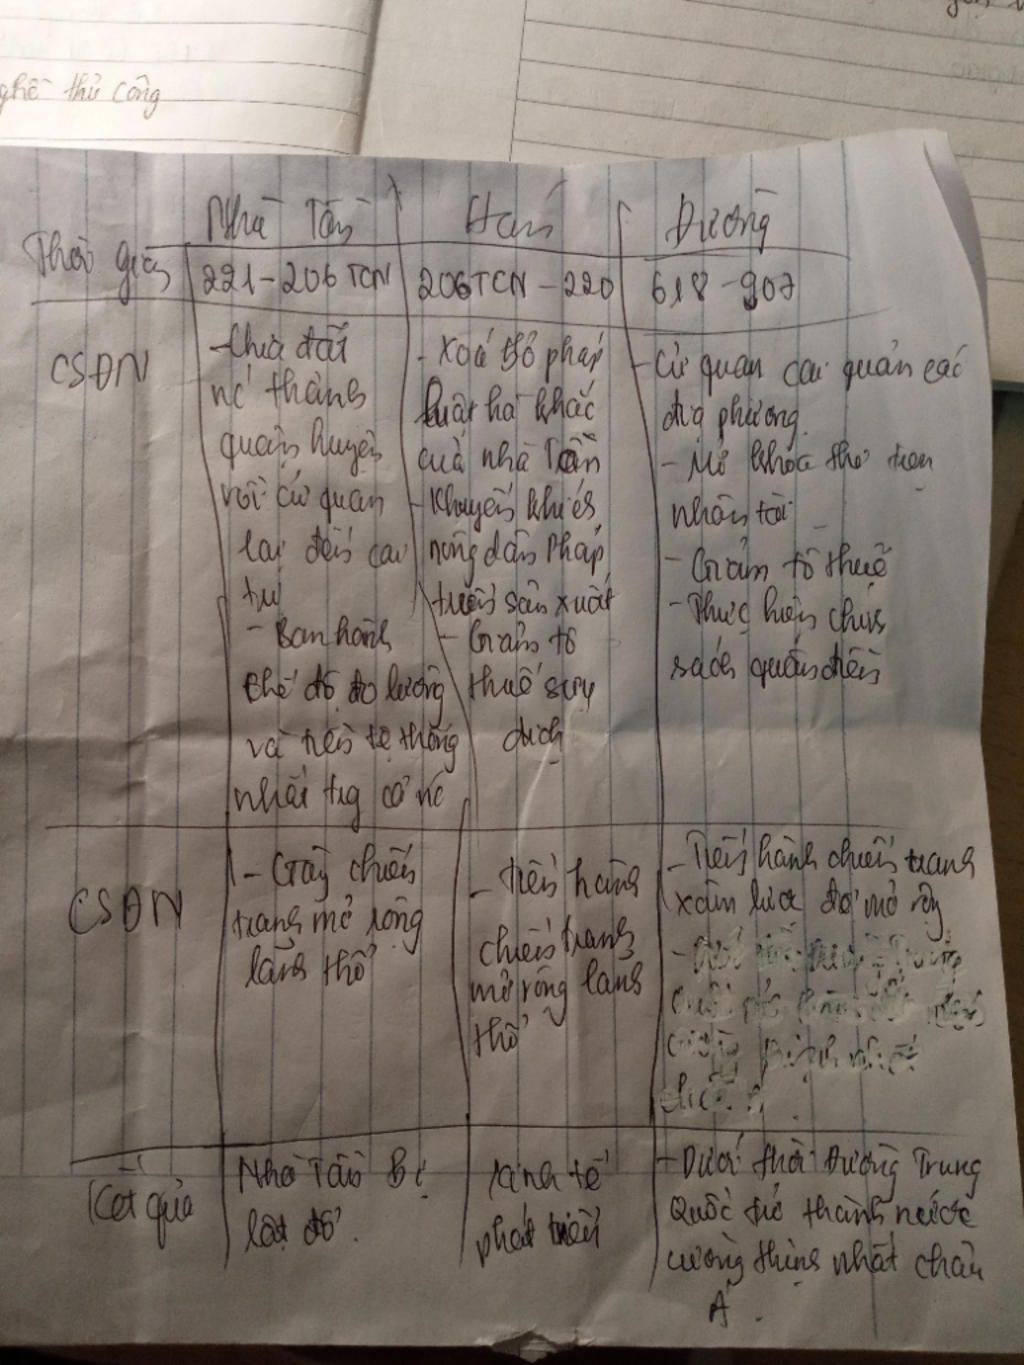 nghề thủ công
Nhà Tần
Hán
Đường
Thời gian
221-206 TCN
206TCN - 220
618-907
CSĐN
-Chia đất
nc thành
quận huyện
rồi cử quan
lại đến cai
trị
- Ban hành
chế độ đo lường
và tiền tệ thống
nhất trg cả nc
- Xoá bỏ pháp
luật hà khắc
cuả nhà Tần
- Khuyến khích
nông dân Pháp
triển sản xuất
- Giảm tô
thuế sưu
dịch
- Cử quan cai quản các
địa phương.
- Mở khoa thi tuyển
nhân tài
- Giảm tô thuế
- Thực hiện chính
sách quân điền
CSĐN
- Gây chiến
tranh mở rộng
lãnh thổ
- tiến hành
chiến tranh
mở rộng lãnh
thổ
- Tiến hành chiến tranh
xâm lược để mở rộng
Kết quả
Nhà Tần Bị
lật đổ.
Kinh tế
phát triển
- Dưới thời Đường Trung
Quốc trở thành nước
cường thịnh nhất châu
Á.